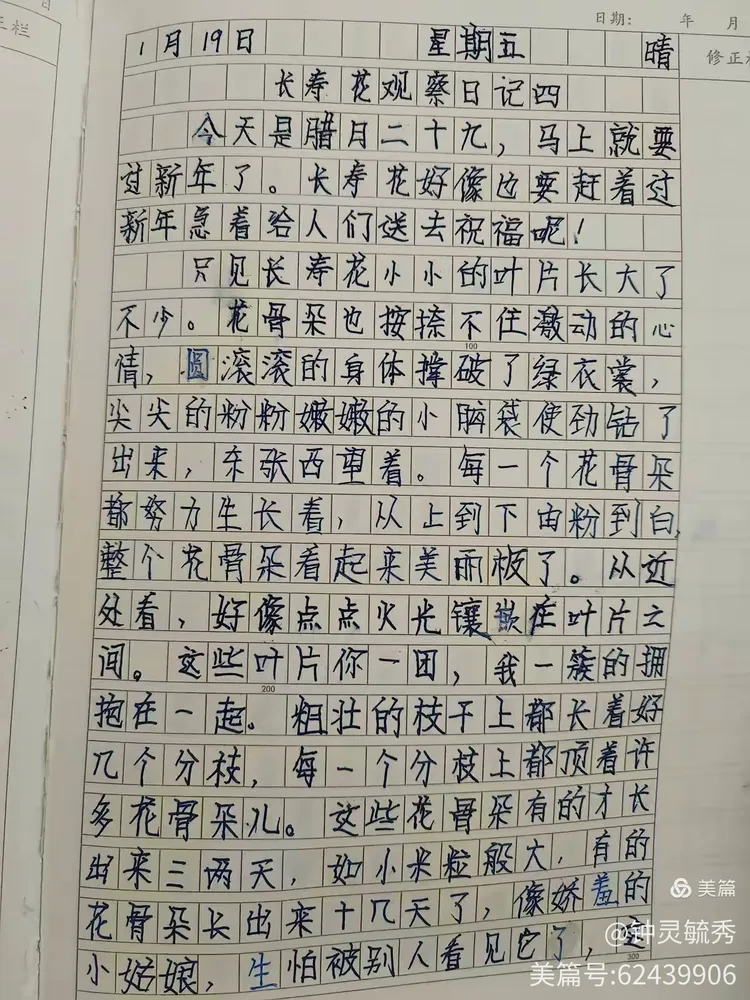 日
正栏
日期： 年 月
修正
1月19日 星期五 晴
长寿花观察日记四
今天是腊月二十九，马上就要
过新年了。长寿花好像也要赶着过
新年急着给人们送去祝福呢！
只见长寿花小小的叶片长大了
不少。花骨朵也按捺不住激动的心
100
情，圆滚滚的身体撑破了绿衣裳，
尖尖的粉粉嫩嫩的小脑袋使劲钻了
出来，东张西望着。每一个花骨朵
都努力生长着，从上到下由粉到白，
整个花骨朵看起来美丽极了。从近
处看，好像点点火光镶嵌在叶片之
间。这些叶片你一团，我一簇的拥
200
抱在一起。粗壮的枝干上都长着好
几个分枝，每一个分枝上都顶着许
多花骨朵儿。这些花骨朵有的才长
出来三两天，如小米粒般大，有的
花骨朵长出来十几天了，像娇羞的
小姑娘，生怕被别人看见它了，
300
美篇
@钟灵毓秀
美篇号:62439906